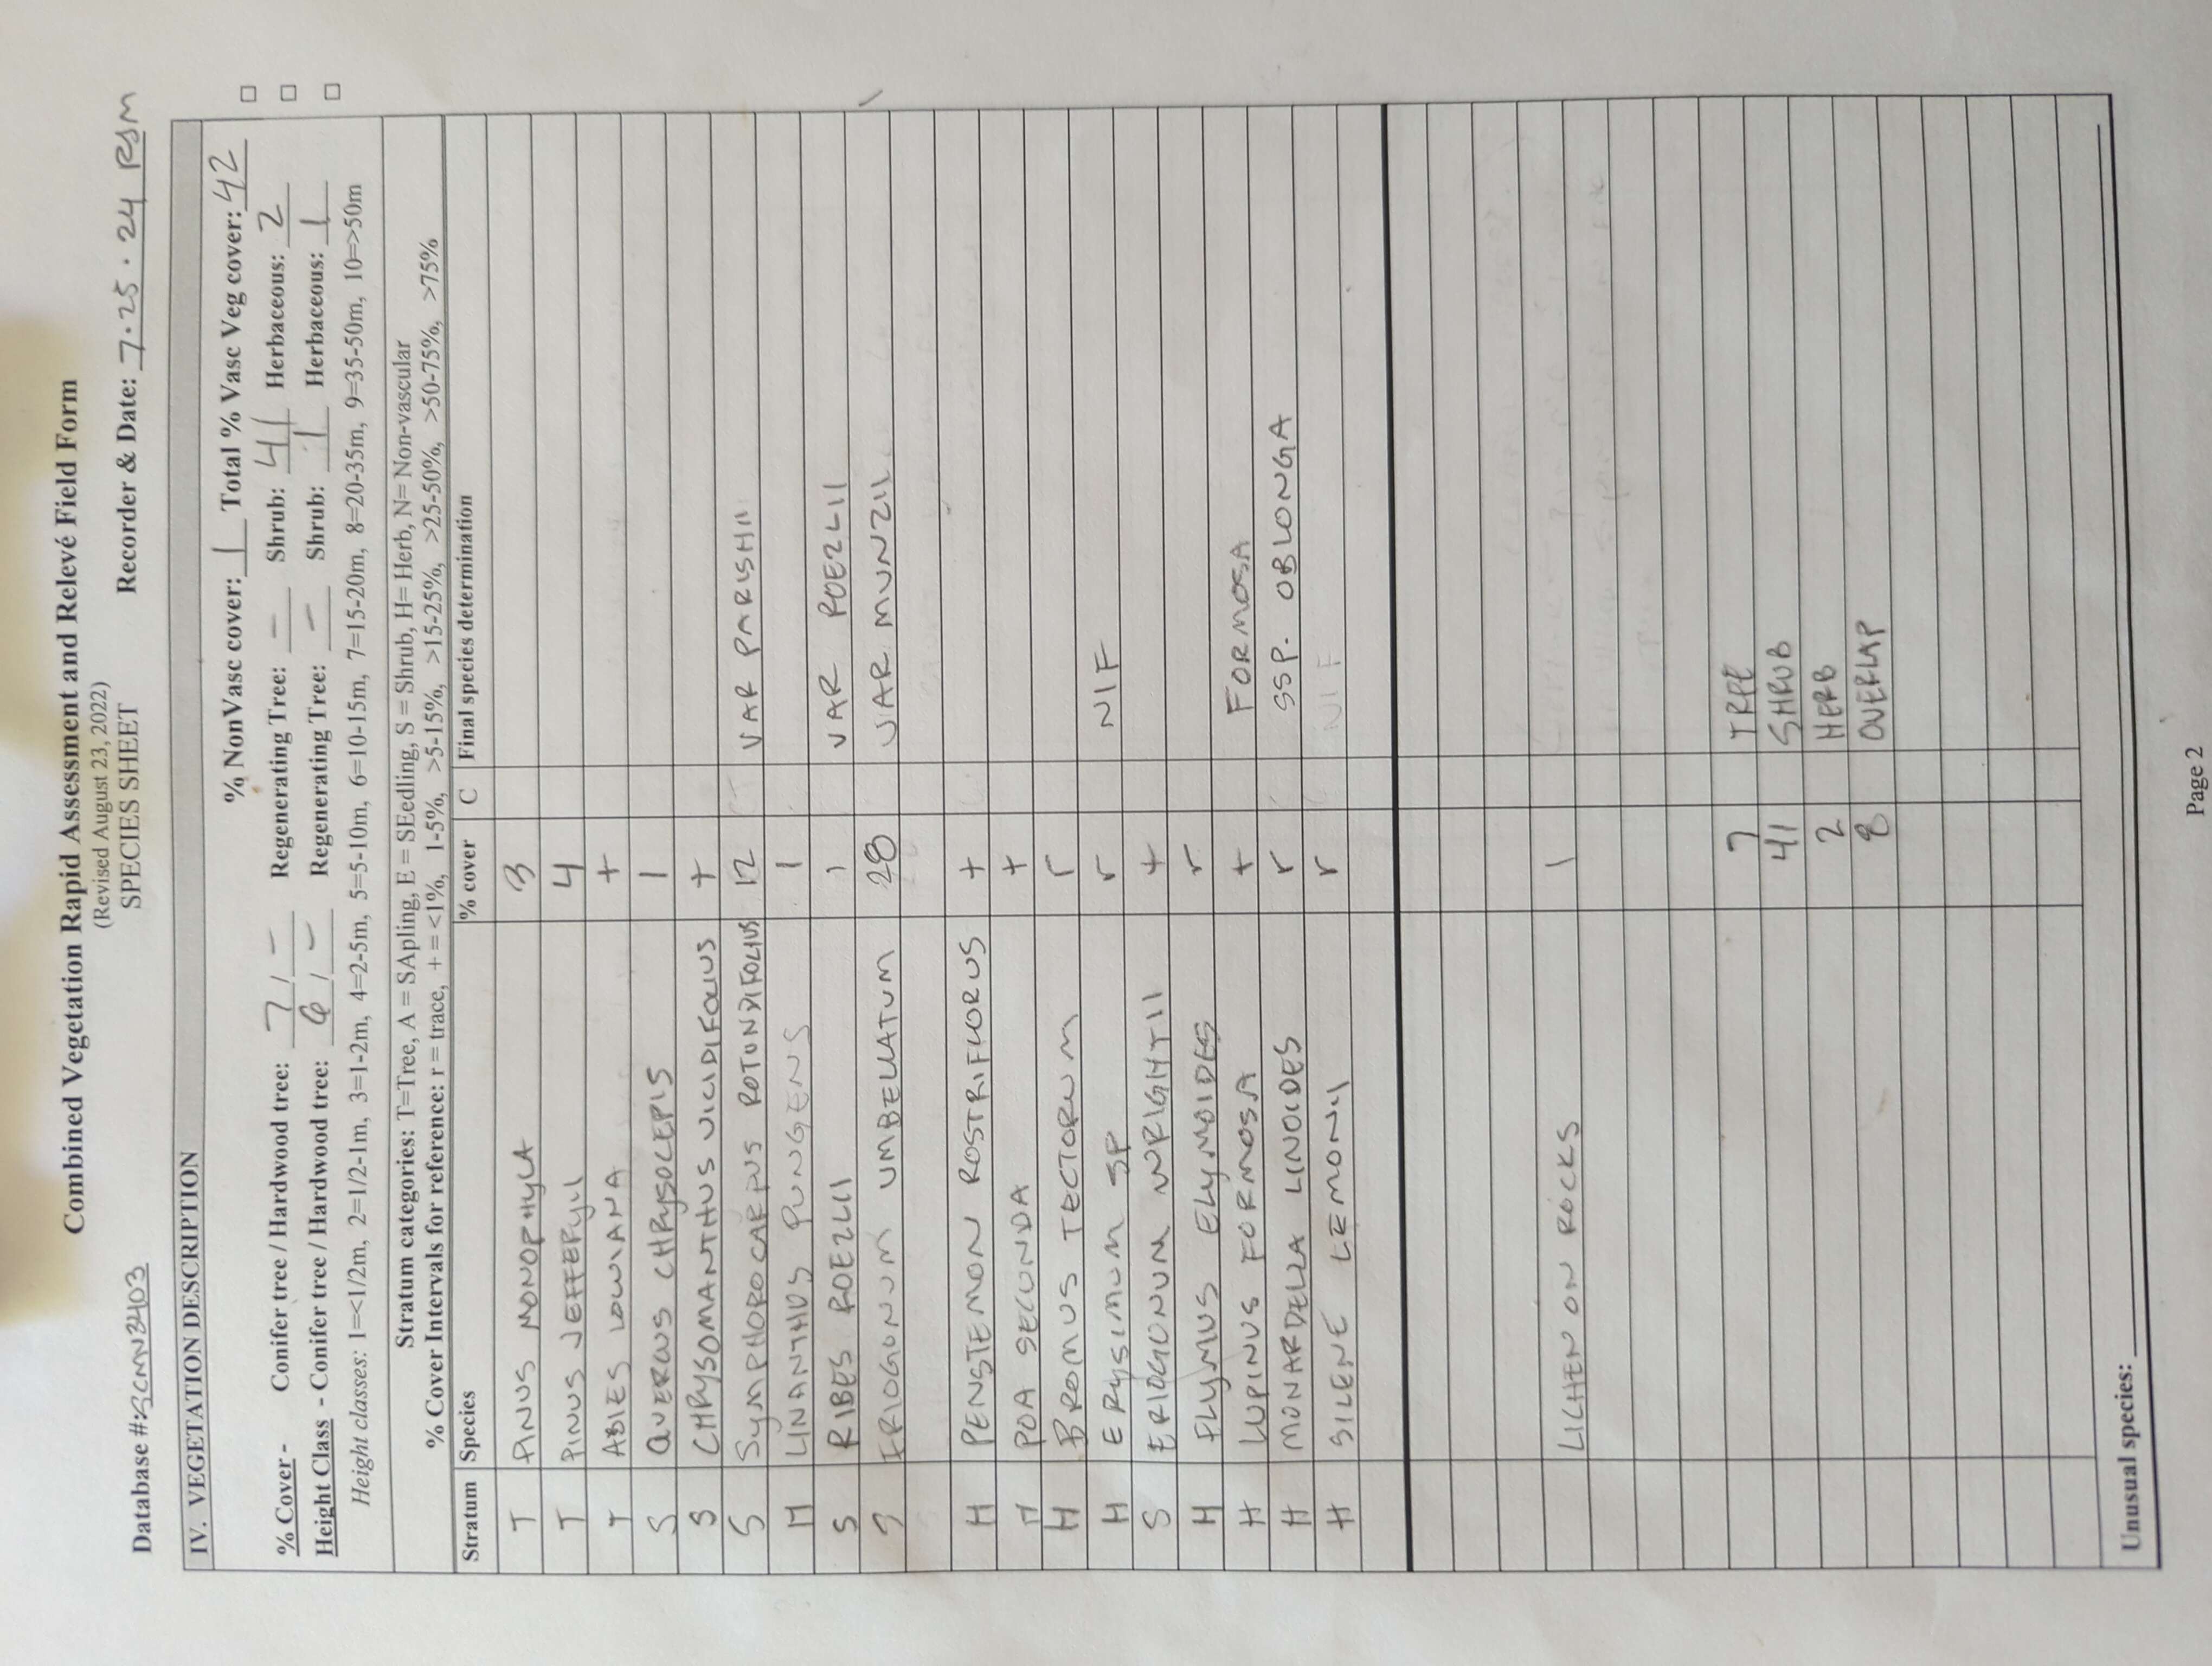 Combined Vegetation Rapid Assessment and Relevé Field Form
(Revised August 23, 2022)
SPECIES SHEET
Database #: SCMN3403 Recorder & Date: 7.25.24 RSM
IV. VEGETATION DESCRIPTION
% NonVasc cover: 1 Total % Vasc Veg cover: 42
% Cover - Conifer tree / Hardwood tree: 7 / – Regenerating Tree: – Shrub: 41 Herbaceous: 2
Height Class - Conifer tree / Hardwood tree: 6 / – Regenerating Tree: – Shrub: 1 Herbaceous: 1
Height classes: 1=<1/2m, 2=1/2-1m, 3=1-2m, 4=2-5m, 5=5-10m, 6=10-15m, 7=15-20m, 8=20-35m, 9=35-50m, 10=>50m
Stratum categories: T=Tree, A = SApling, E = SEedling, S = Shrub, H= Herb, N= Non-vascular
% Cover Intervals for reference: r = trace, + = <1%, 1-5%, >5-15%, >15-25%, >25-50%, >50-75%, >75%
Stratum Species % cover C Final species determination
T PINUS MONOPHYLA 3
T PINUS JEFFERYII 4
T ABIES LOWIANA +
S QUERCUS CHRYSOLEPIS 1
S CHRYSOMANTHUS VICIDIFOLIUS +
S SYMPHOROCARPUS ROTUNDIFOLIUS 12 VAR PARISHII
H LINANTHUS PUNGENS 1
S RIBES ROEZLII 1 VAR ROEZLII
S ERIOGONUM UMBELLATUM 28 VAR MUNZII
H PENSTEMON ROSTRIFLORUS +
H POA SECUNDA +
H BROMUS TECTORUM r
H ERYSIMUM SP r NIF
S ERIOGONUM WRIGHTII +
H ELYMUS ELYMOIDES r
H LUPINUS FORMOSA + FORMOSA
H MONARDELLA LINOIDES r SSP. OBLONGA
H SILENE LEMONII r NIF
LICHEN ON ROCKS 1
7 TREE
41 SHRUB
2 HERB
8 OVERLAP
Unusual species:
Page 2